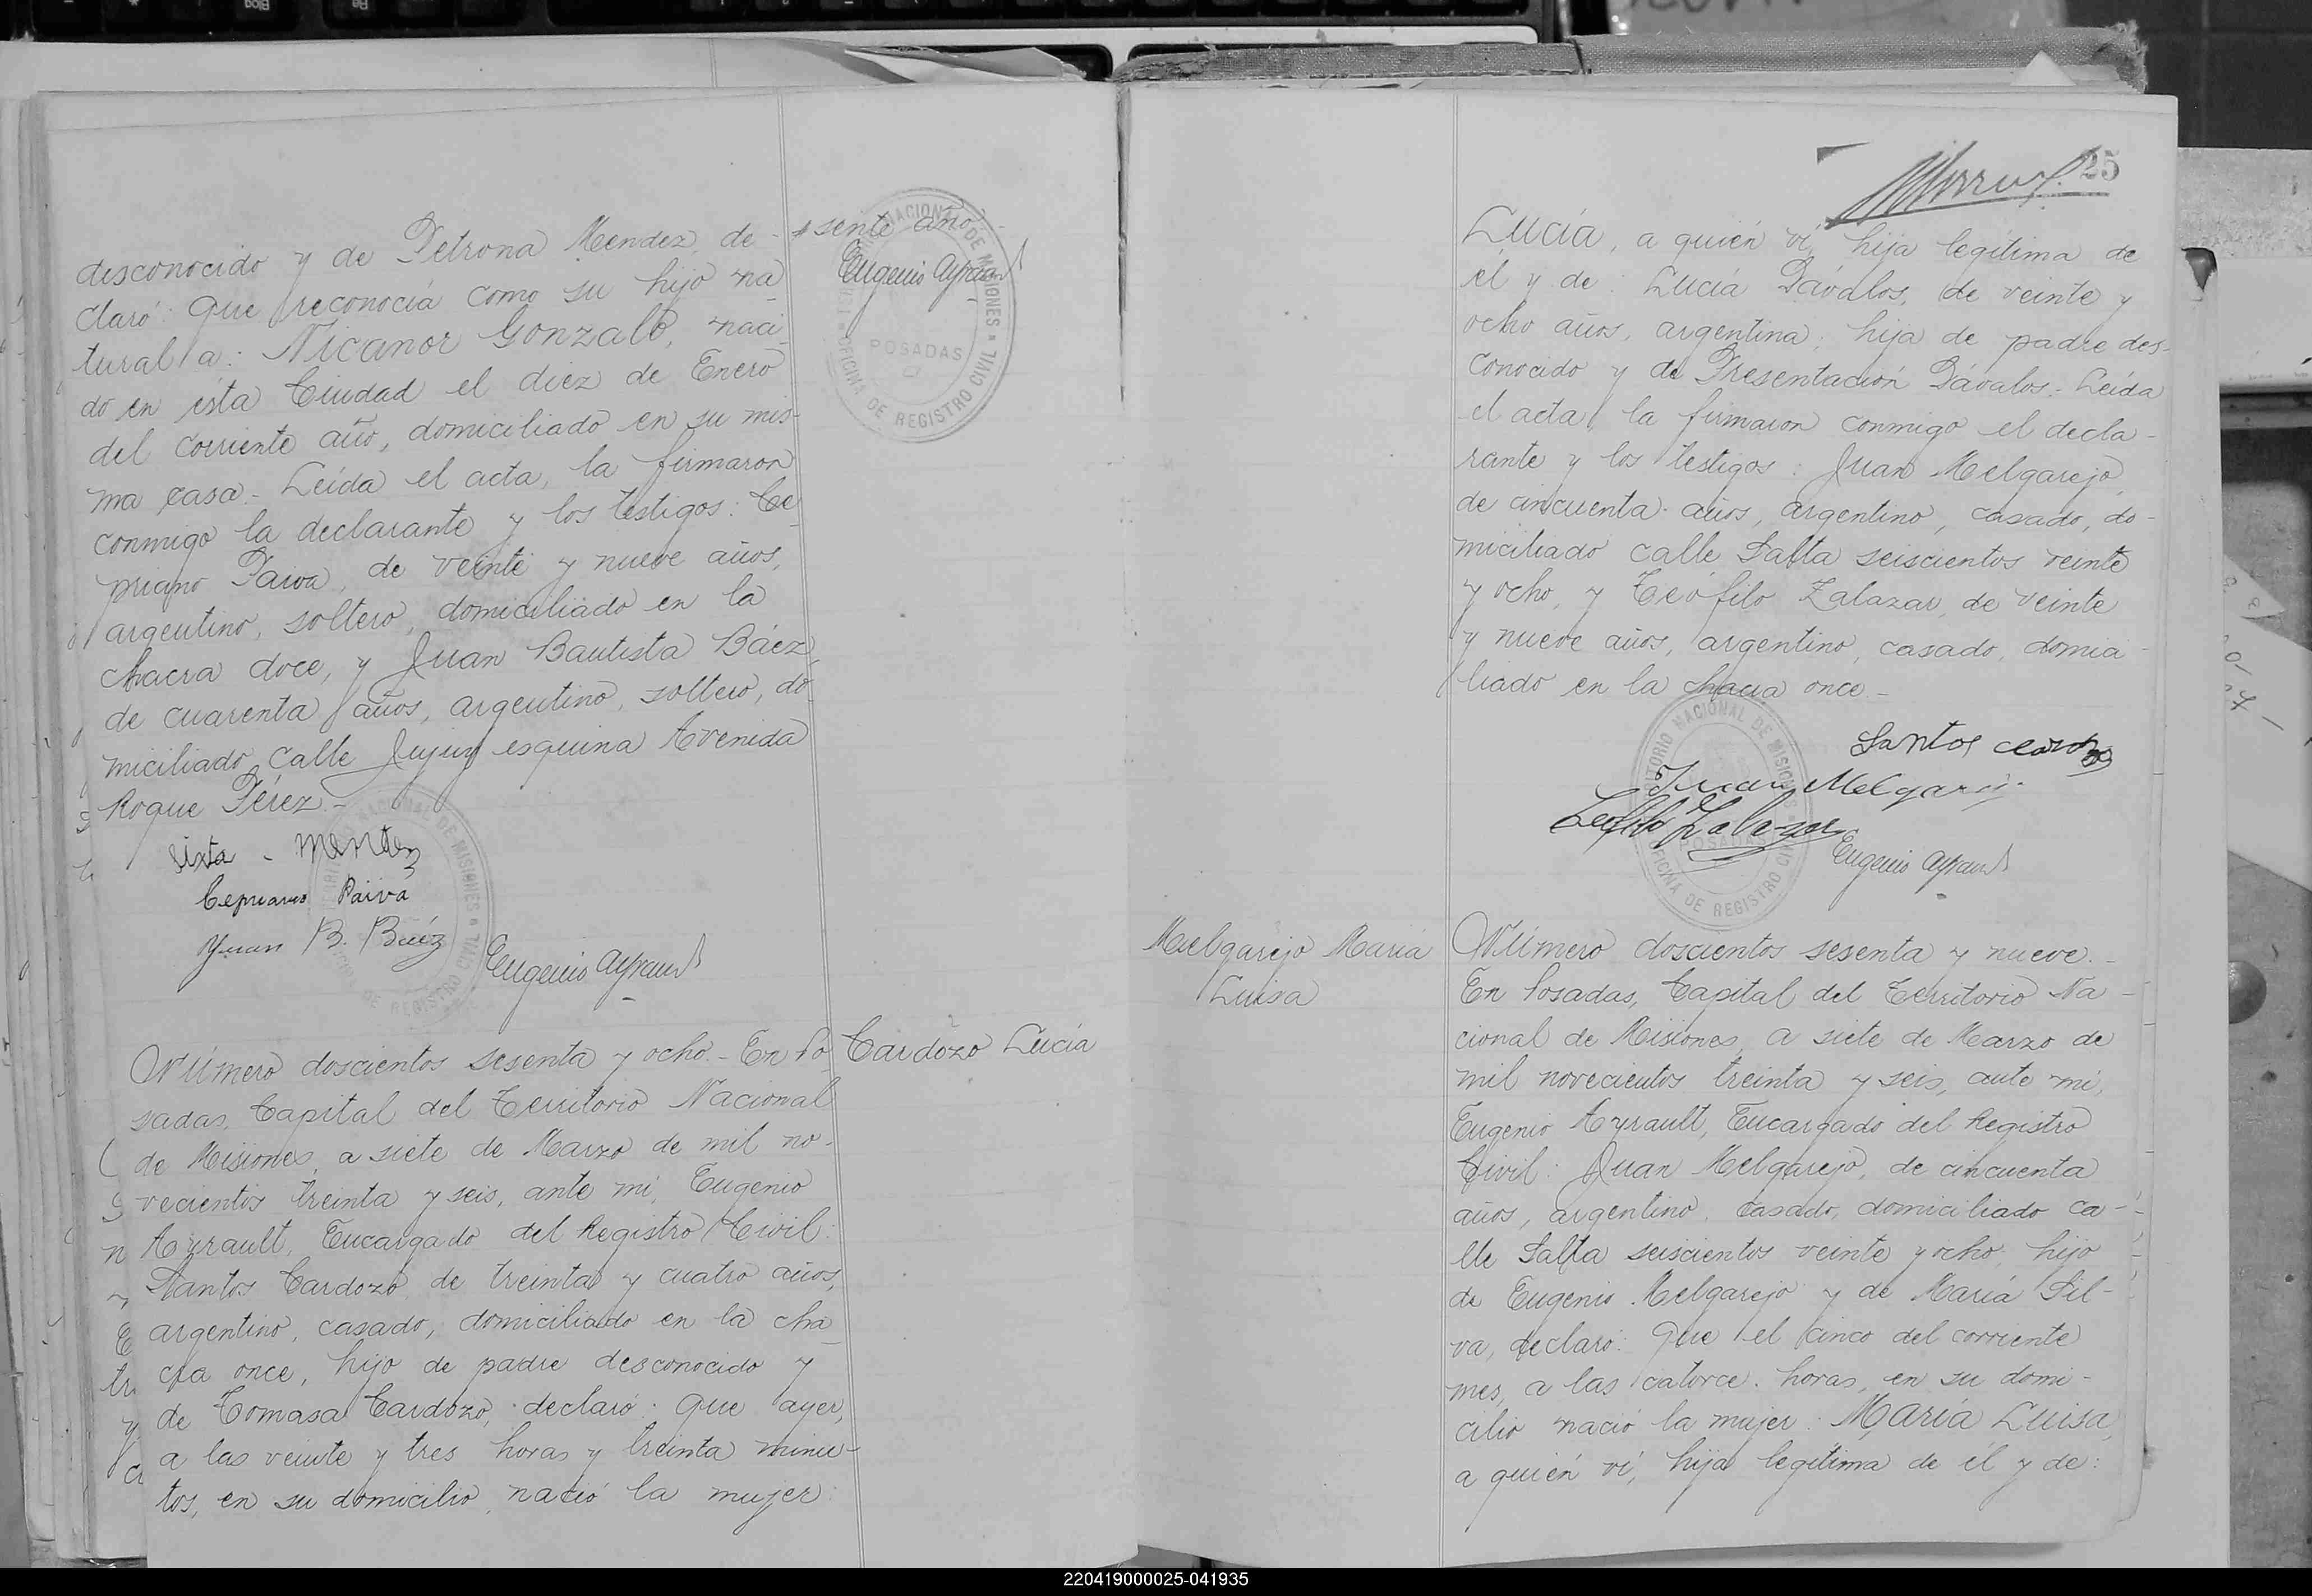 disconocido y de Petrona Mendez, de-
claró: Que reconocía como su hijo na-
tural a: Nicanor Gonzalo, naci-
do en ésta Ciudad el diez de Enero
del corriente año, domiciliado en su mis-
ma casa.- Leída el acta, la firmaron
conmigo la declarante y los testigos: Ce-
priano Paiva, de veinte y nueve años,
argentino, soltero, domiciliado en la
chacra doce, y Juan Bautista Báez,
de cuarenta años, argentino, soltero, do-
miciliado calle Jujuy esquina Avenida
Roque Pérez.-
Sixta - Mendez
Cepriano Paiva
Juan B. Báez
Eugenio Ayrault
sente año
Eugenio Ayrault
NACIONAL DE MISIONES
POSADAS
OFICINA DE REGISTRO CIVIL
Número doscientos sesenta y ocho.- En Po-
Cardozo Lucía
sadas, Capital del Territorio Nacional
de Misiones, a siete de Marzo de mil no-
vecientos treinta y seis, ante mi, Eugenio
Ayrault, Encargado del Registro Civil:
Santos Cardozo, de treinta y cuatro años,
argentino, casado, domiciliado en la cha-
cra once, hijo de padre desconocido y
de Tomasa Cardozo, declaró: Que ayer,
a las veinte y tres horas y treinta minu-
tos, en su domicilio, nació la mujer:
25
Lucía, a quién ví, hija legítima de
él y de: Lucía Dávalos, de veinte y
ocho años, argentina, hija de padre des-
conocido y de Presentación Dávalos.- Leída
el acta, la firmaron conmigo el decla-
rante y los testigos: Juan Melgarejo,
de cincuenta años, argentino, casado, do-
miciliado calle Salta seiscientos veinte
y ocho, y Teófilo Zalazar, de veinte
y nueve años, argentino, casado, domici-
liado en la chacra once.-
Santos Cardozo
Juan Melgarejo
Teófilo Zalazar
Eugenio Ayrault
TERRITORIO NACIONAL DE MISIONES
POSADAS
OFICINA DE REGISTRO CIVIL
Melgarejo María
Luisa
Número doscientos sesenta y nueve.-
En Posadas, Capital del Territorio Na-
cional de Misiones, a siete de Marzo de
mil novecientos treinta y seis, ante mi,
Eugenio Ayrault, Encargado del Registro
Civil: Juan Melgarejo, de cincuenta
años, argentino, casado, domiciliado ca-
lle Salta seiscientos veinte y ocho, hijo
de Eugenio Melgarejo y de María Sil-
va, declaró: Que el cinco del corriente
mes, a las catorce horas, en su domi-
cilio nació la mujer: María Luisa,
a quién ví, hija legítima de él y de:
220419000025-041935